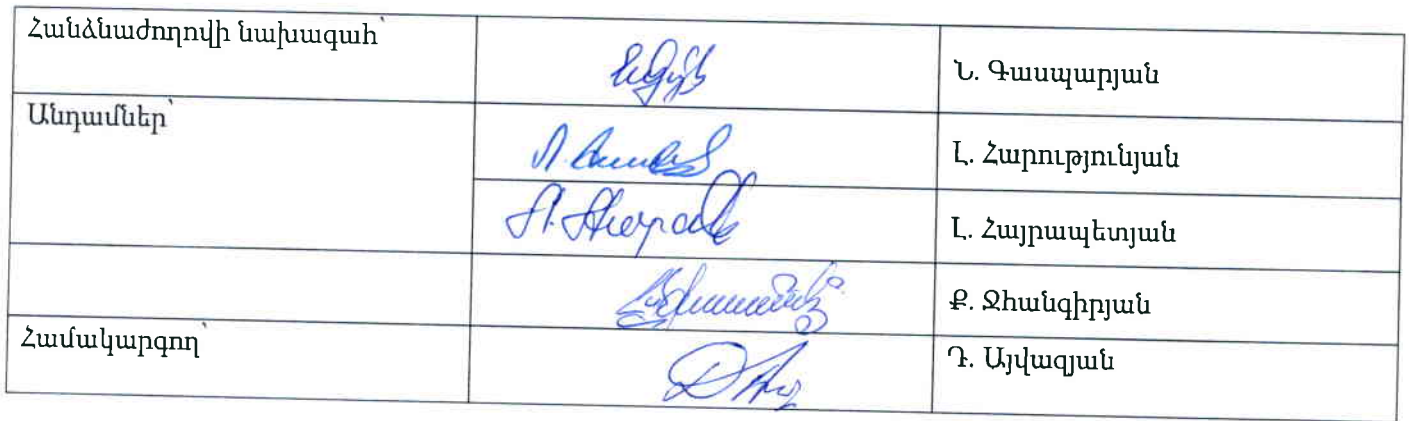 Հանձնաժողովի նախագահ՝
Ն. Գասպարյան
Անդամներ՝
Լ. Հարությունյան
Լ. Հայրապետյան
Ք. Ջհանգիրյան
Համակարգող՝
Դ. Այվազյան